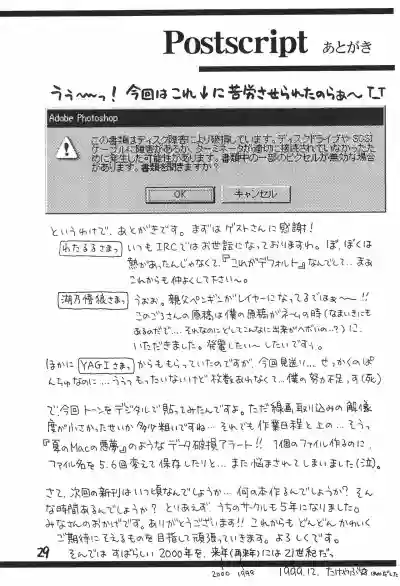 Postscript あとがき
うぅ〜〜っ！今回はこれ↓に苦労させられたのらぁ〜T_T
Adobe Photoshop
この書類はディスク障害により破損しています。ディスクドライブや SCSI
ケーブルに障害があるか、ターミネータが適切に接続されていなかったた
めに発生した可能性があります。書類中の一部のピクセルが無効な場合
があります。書類を開きますか？
OK キャンセル
というわけで、あとがきです。まずはゲストさんに感謝！
わたるるさまっ いつもIRCではお世話になっておりますわ。ぼ、ぼくは
熱があったんじゃなくて、『これがデフォルト』なんでして… まぁ
これからも仲よくして下さい〜。
湖乃悟狼さまっ うぉぉ。親父ペンギンがレイヤーになってるではぁ〜ー!!
このごろさんの原稿は僕の原稿がネームの時(なまいきにも
あるのだで…それなのにどしてこんなに出来がヘボいの…？)に、
いただきました。発電したい〜したいですぅ。
ほかに YAGIさまっ からももらっていたのですが、今回見送り… せっかくのぽ
んちゅなのに…ううぅもったいないけど枚数あれなくて…僕の努力不足っす(死)
で、今回トーンをデジタルで貼ってみたんですよ。ただ線画取り込みの解像
度が小さかったせいか多少粗いですね… それでも作業日程と上の…そうっ
『真夏のMacの悪夢』のようなデータ破損アラート!! 1個のファイル作るのに、
ファイル名を5、6回変えて保存したりと… また悩まされてしまいました(泣)。
さて、次回の新刊はいつ頃なんでしょうか… 何の本作るんでしょうか？そん
な時間あるんでしょうか？とりあえず、うちのサークルも5年になりました。
みなさんのおかげです。ありがとうございます!! これからもどんどんかわいく
ご期待にそえるものを目指して頑張っていきます。よろしくです。
29 そんではすばらしい2000年を、来年(再来年)には21世紀だ。
2000 1999 1999.12.